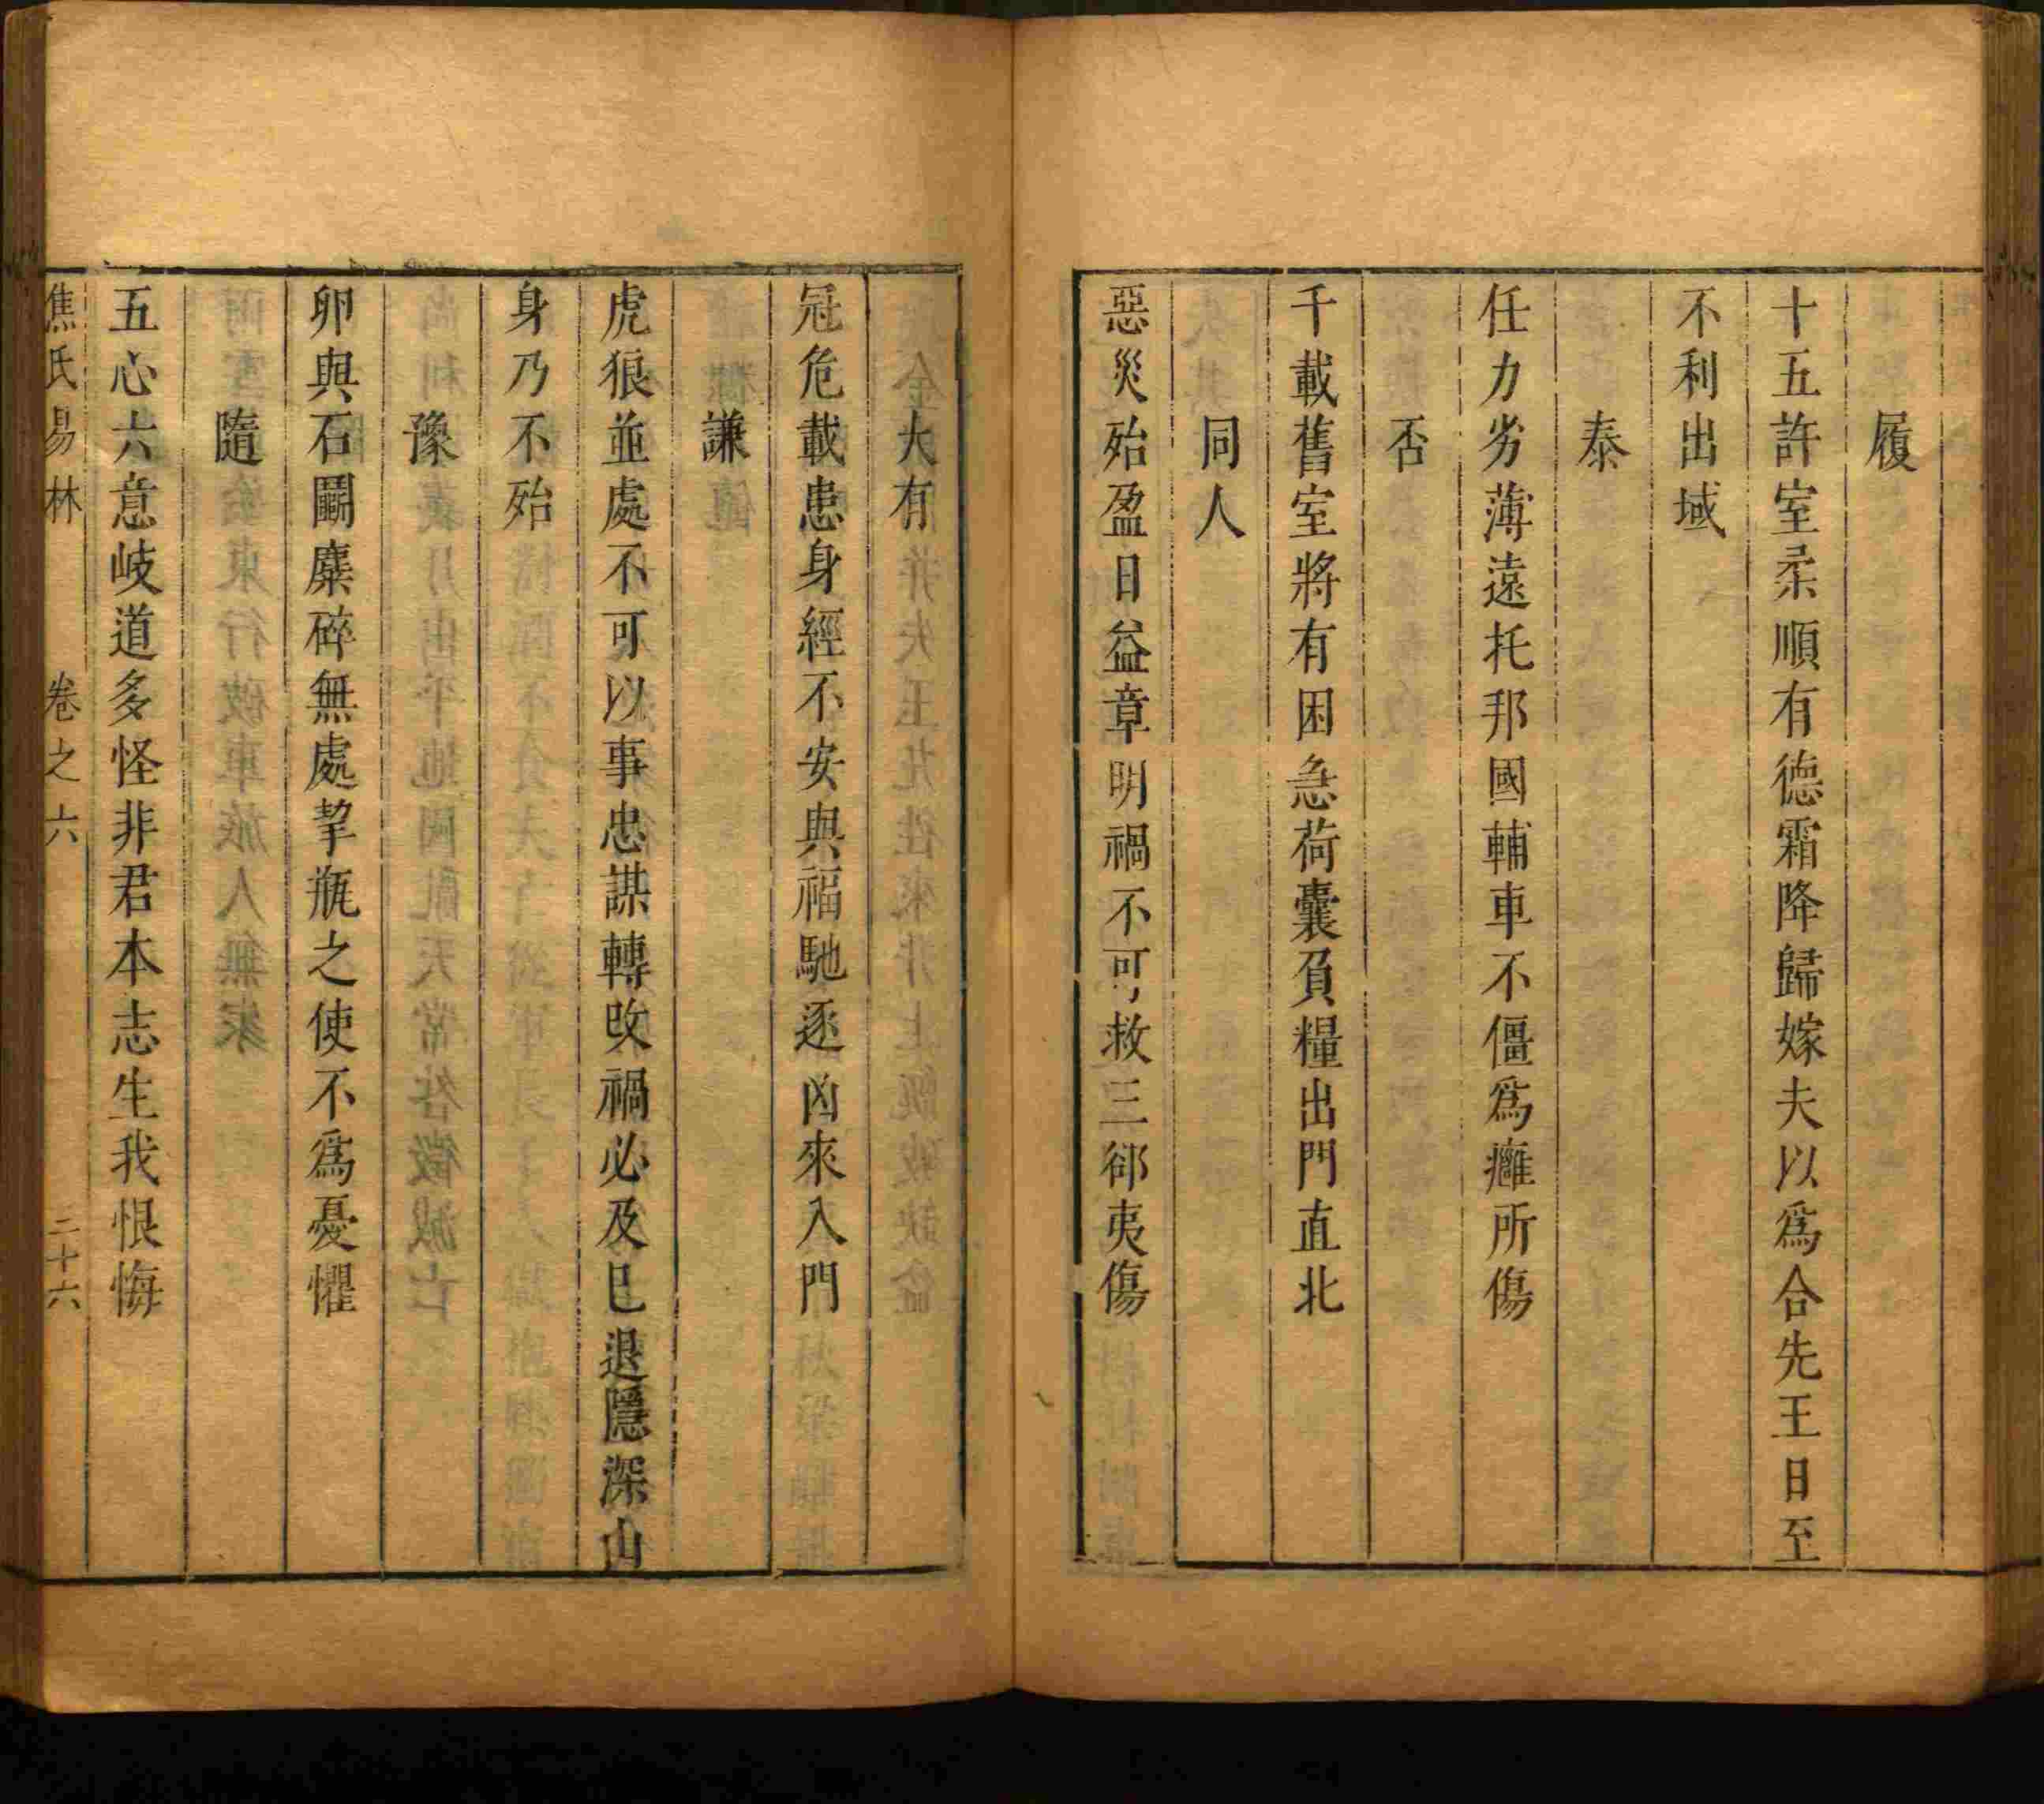 履
十五許室柔順有德霜降歸嫁夫以爲合先王日至
不利出域
泰
任力劣薄遠托邦國輔車不僵爲癰所傷
否
千載舊室將有困急荷囊負糧出門直北
同人
惡災殆盈日益章明禍不可救三郤夷傷
大有
冠危載患身經不安與福馳逐凶來入門
謙
虎狼並處不可以事忠謀轉改禍必及已退隱深山
身乃不殆
豫
卵與石鬬麋碎無處挈瓶之使不爲憂懼
隨
五心六意岐道多怪非君本志生我恨悔
焦氏易林 卷之六 二十六